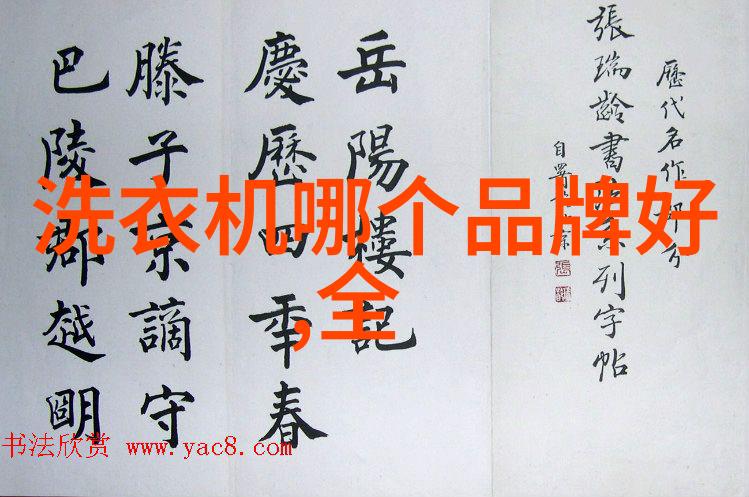 歷代名作部分
張瑞齡書系列字帖
自署
岳陽樓記
慶歷四年春
滕子京謫守
巴陵郡越明
洗衣机哪个品牌好
,全
书法欣赏 www.yac8.com